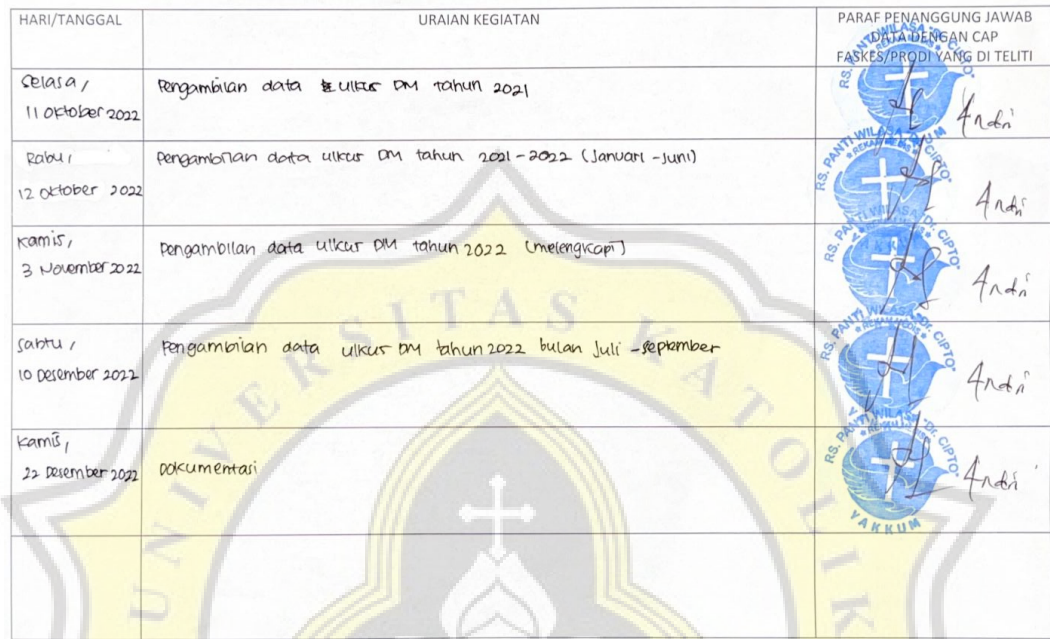 HARI/TANGGAL
URAIAN KEGIATAN
PARAF PENANGGUNG JAWAB
DATA DENGAN CAP
FASKES/PRODI YANG DI TELITI
Selasa,
11 Oktober 2022
Pengambilan data ulkus DM tahun 2021
RS. PANTI WILASA "DR. CIPTO"
Andri
Rabu,
12 Oktober 2022
Pengambilan data ulkus DM tahun 2021-2022 (Januari-Juni)
RS. PANTI WILASA "DR. CIPTO"
Andri
Kamis,
3 November 2022
Pengambilan data ulkus DM tahun 2022 (melengkapi)
RS. PANTI WILASA "DR. CIPTO"
Andri
Sabtu,
10 Desember 2022
Pengambilan data ulkus DM tahun 2022 bulan Juli - September
RS. PANTI WILASA "DR. CIPTO"
Andri
Kamis,
22 Desember 2022
Dokumentasi
RS. PANTI WILASA "DR. CIPTO"
YAKKUM
Andri
UNIVERSITAS KATOLIK